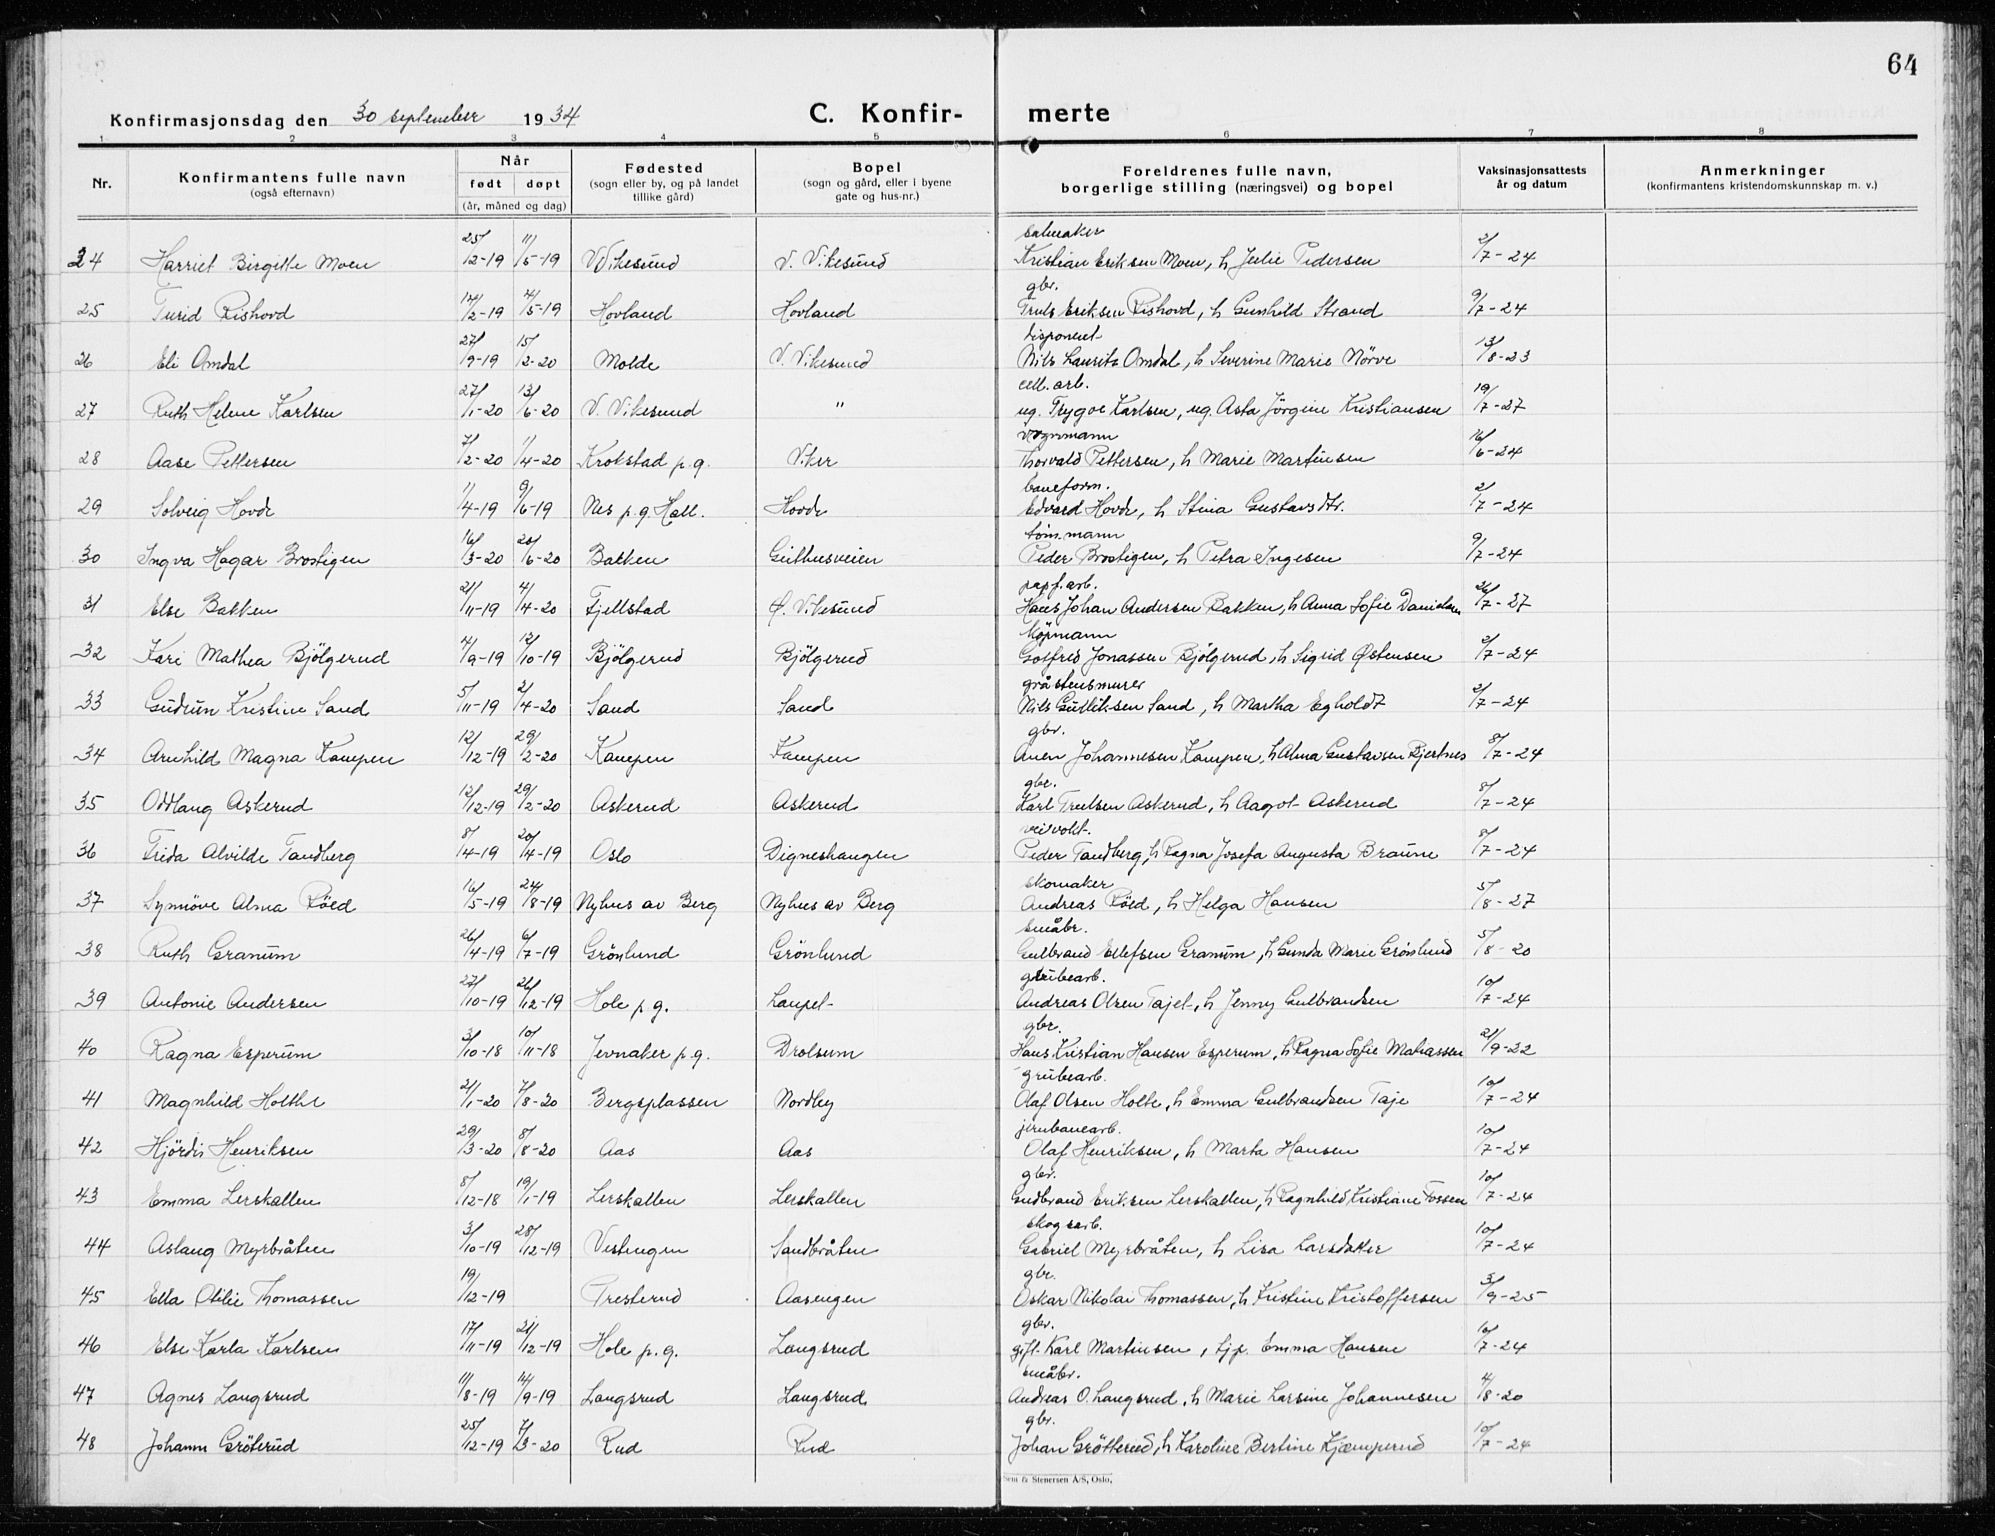 64
Konfirmasjonsdag den 30 september 1934 C. Konfir- merte
1 2 3 4 5 6 7 8
Nr. Konfirmantens fulle navn (også efternavn) Når født døpt (år, måned og dag) Fødested (sogn eller by, og på landet tillike gård) Bopel (sogn og gård, eller i byene gate og hus-nr.) Foreldrenes fulle navn, borgerlige stilling (næringsvei) og bopel Vaksinasjonsattests år og datum Anmerkninger (konfirmantens kristendomskunnskap m. v.)
salmaker
24 Harriet Birgitte Moen 25/12-19 11/5-19 V. Vikesund V. Vikesund Kristian Eriksen Moen, h Julie Pedersen 2/7-24
gbr.
25 Turid Rishovd 17/2-19 4/5-19 Hovland Hovland Truls Eriksen Rishovd, h Gunhild Strand 9/7-24
disponent
26 Eli Omdal 27/9-19 15/2-20 Molde V. Vikesund Nils Laurits Omdal, h Severine Marie Nörve 13/8-23
cell. arb.
27 Ruth Helene Karlsen 27/1-20 13/6-20 V. Vikesund " ug. Trygve Karlsen, ug. Asta Jörgine Kristiansen 19/7-27
vognmann
28 Aase Pettersen 7/2-20 1/4-20 Krokstad p.g. Viker Thorvald Pettersen, h Marie Martinsen 16/6-24
baneform.
29 Solveig Hovde 1/4-19 9/6-19 Nes p.g. Hall. Hovde Edvard Hovde, h Stina Gustavsdtr. 2/7-24
töm.mann
30 Ingva Hagar Brostigen 16/3-20 20/6-20 Bakken Geithusveien Peder Brostigen, h Petra Ingesen 9/7-24
papf. arb.
31 Else Bakken 21/11-19 4/4-20 Fjellstad Ø. Vikesund Hans Johan Andersen Bakken, h Anna Sofie Danielsen 26/7-27
kjöpmann
32 Kari Mathea Bjölgerud 4/9-19 12/10-19 Bjölgerud Bjölgerud Gotfred Jonassen Bjölgerud, h Sigrid Østensen 2/7-24
gråstensmurer
33 Gudrun Kristine Sand 5/11-19 2/4-20 Sand Sand Nils Gulliksen Sand, h Martha Egholdt 2/7-24
gbr.
34 Arnhild Magna Kampen 12/12-19 29/2-20 Kampen Kampen Anen Johannesen Kampen, h Alma Gustavsen Bjertnes 8/7-24
gbr.
35 Oddlaug Askerud 12/12-19 29/2-20 Askerud Askerud Karl Trulsen Askerud, h Aagot Askerud 8/7-24
veivokt.
36 Frida Alvilde Tandberg 8/4-19 20/4-19 Oslo Digneshaugen Peder Tandberg, h Ragna Josefa Augusta Braune 8/7-24
skomaker
37 Synnöve Alma Röed 16/5-19 24/8-19 Nyhus av Berg Nyhus av Berg Andreas Röed, h Helga Hansen 5/8-27
småbr.
38 Ruth Granum 26/4-19 6/7-19 Grönlund Grönlund Gulbrand Ellefsen Granum, h Gunda Marie Grönlund 5/8-20
grubearb.
39 Antonie Andersen 27/10-19 26/12-19 Hole p.g. Laupet Andreas Olsen Tajet, h Jenny Gulbrandsen 10/7-24
gbr.
40 Ragna Esperum 3/10-18 10/11-18 Jevnaker p.g. Drolsum Hans Kristian Hansen Esperum, h Ragna Sofie Matiassen 21/9-22
grubearb.
41 Magnhild Holthe 2/1-20 7/8-20 Bergsplassen Nordby Olaf Olsen Holte, h Emma Gulbrandsen Taje 10/7-24
jernbanearb.
42 Hjördis Henriksen 29/3-20 8/8-20 Aas Aas Olaf Henriksen, h Marta Hansen 10/7-24
gbr.
43 Emma Lerskallen 8/12-18 19/1-19 Lerskallen Lerskallen Gudbrand Eriksen Lerskallen, h Ragnhild Kristiane Fossen 10/7-24
skogsarb.
44 Aslaug Myrbråten 3/10-19 28/12-19 Vestengen Sandbråten Gabriel Myrbråten, h Lisa Larsdatter 10/7-24
gbr.
45 Ella Otilie Thomassen 19/12-19 Tresterud Aasengen Oskar Nikolai Thomassen, h Kristine Kristoffersen 3/9-25
gbr.
46 Else Karla Karlsen 17/11-19 21/12-19 Hole p.g. Langsrud gift Karl Martinsen, tjp. Emma Hansen 10/7-24
småbr.
47 Agnes Langsrud 11/8-19 14/9-19 Langsrud Langsrud Andreas O. Langsrud, h Marie Larsine Johannesen 4/8-20
gbr.
48 Johanne Gröterud 25/12-19 7/3-20 Rud Rud Johan Grötterud, h Karoline Bertine Kjæmperud 10/7-24
Sem & Stenersen A/S, Oslo,